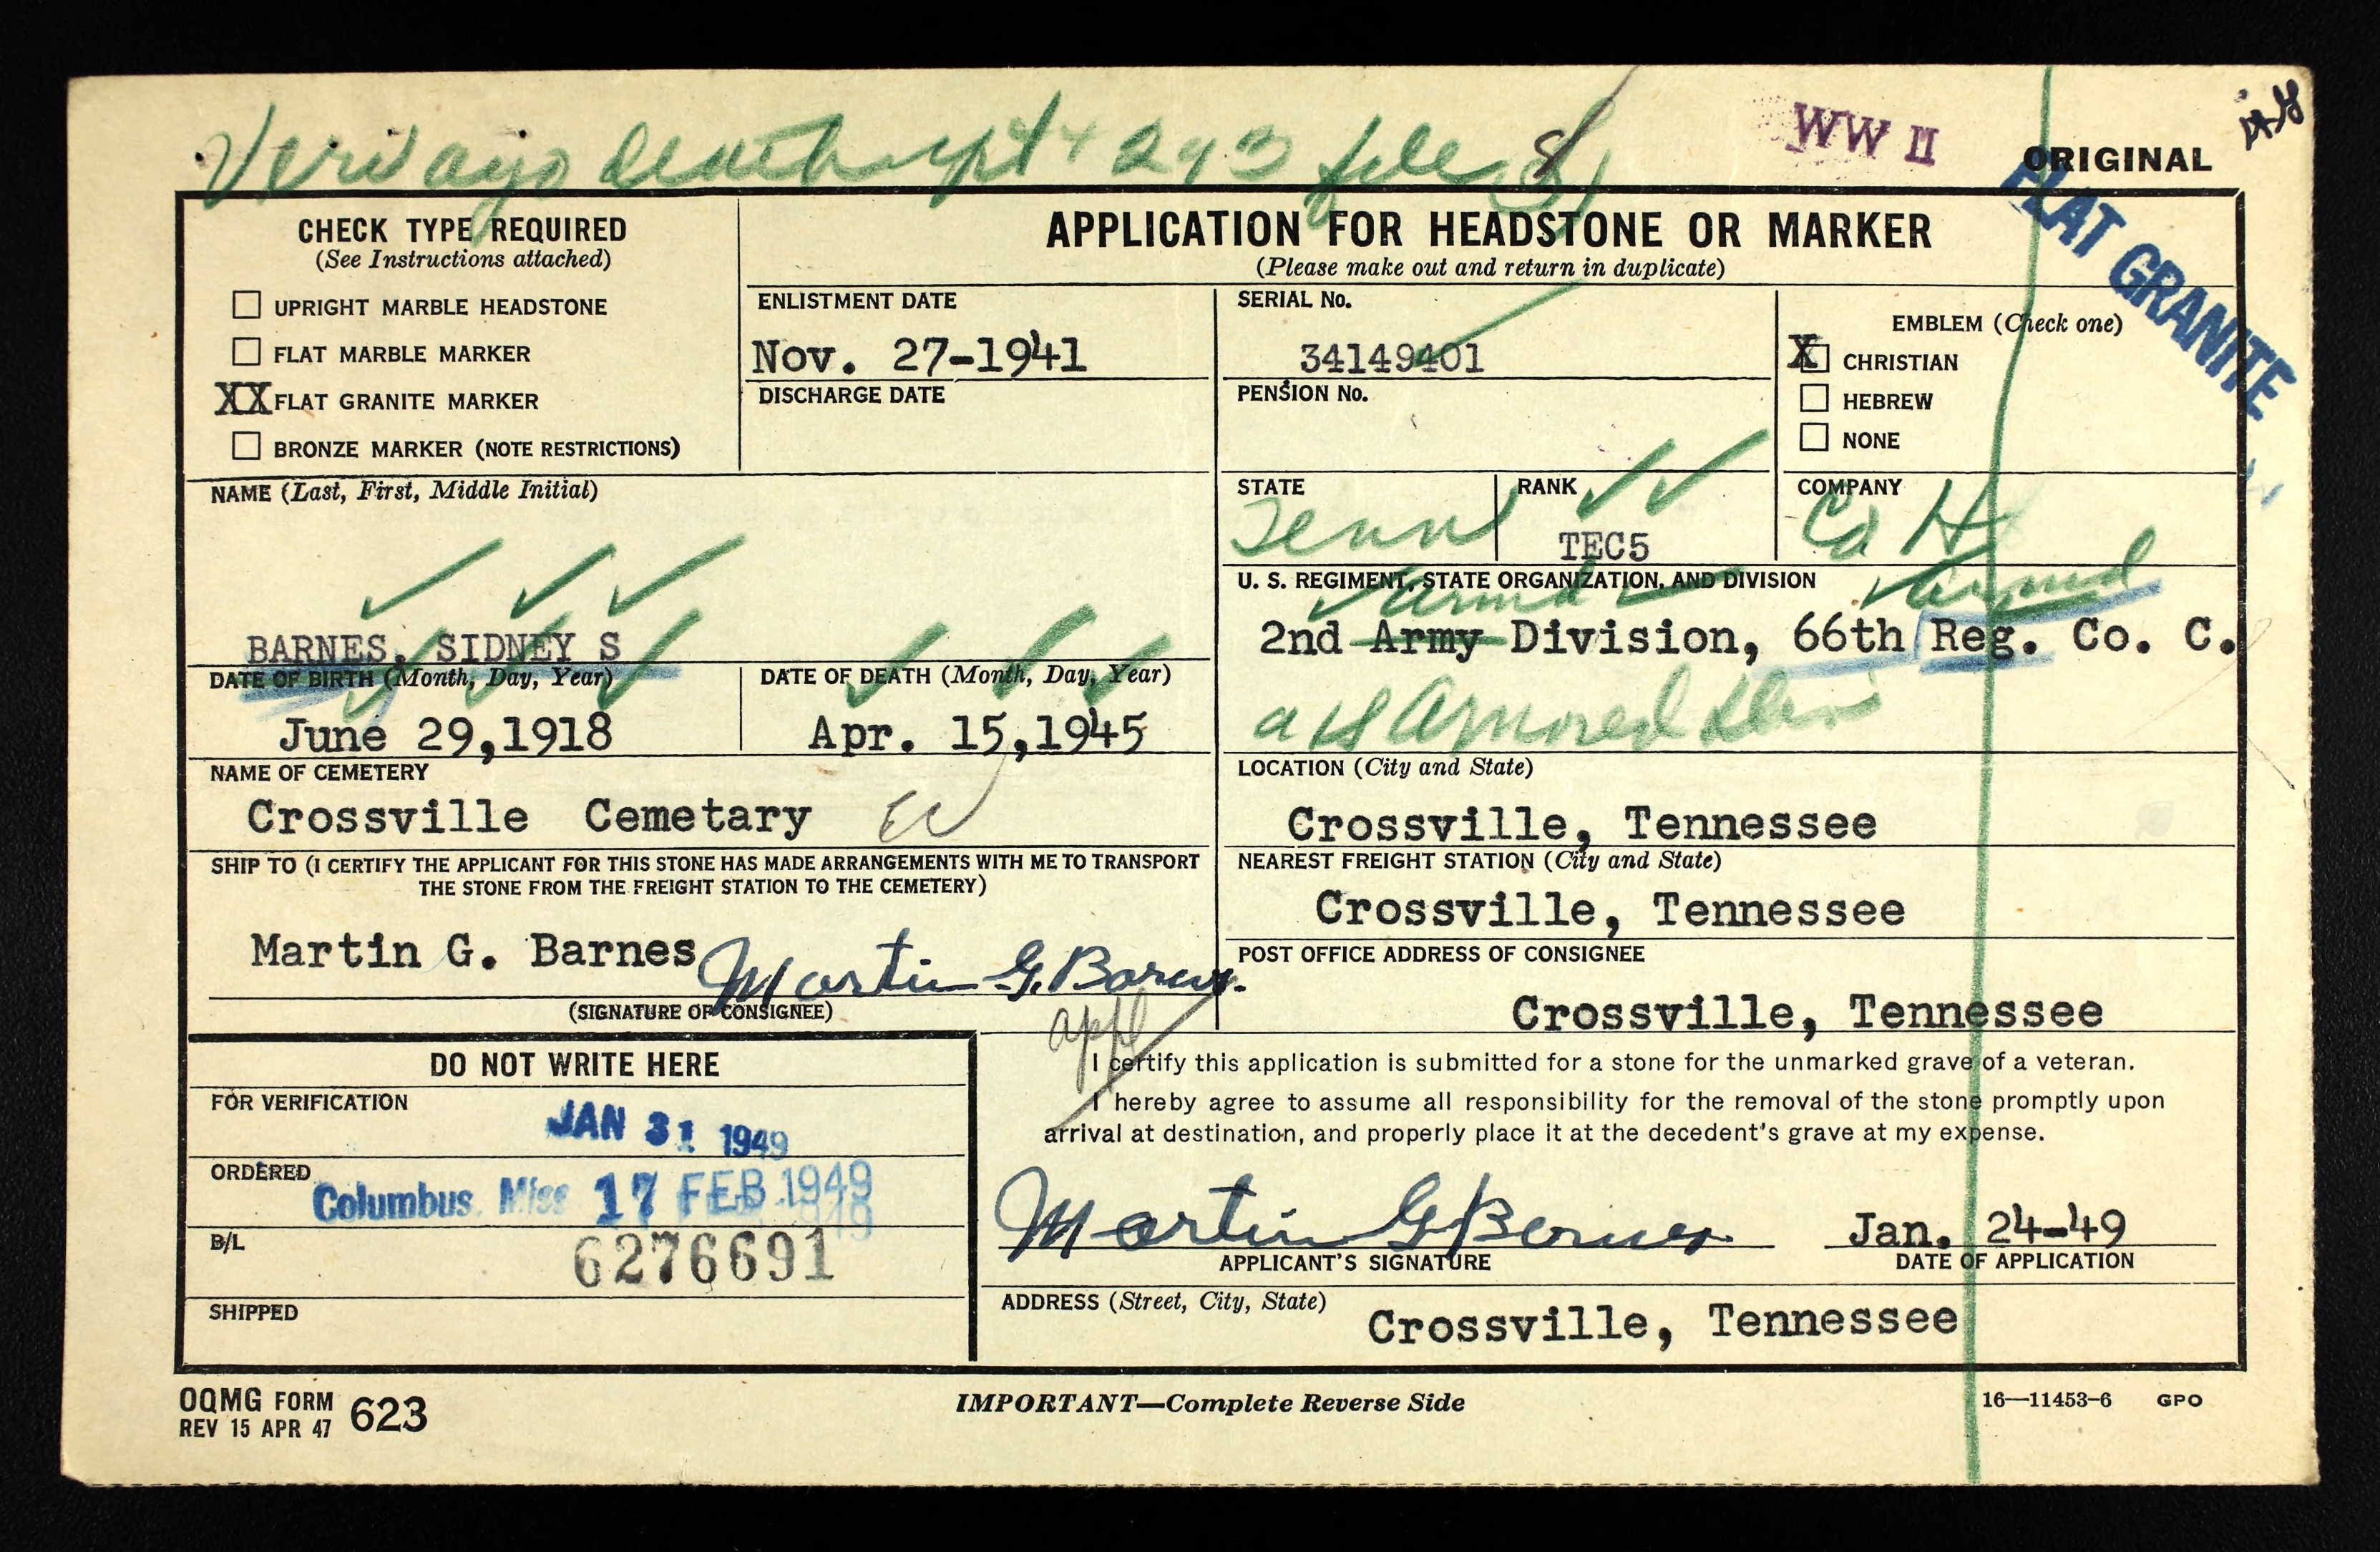 death rpt + 293 file
WW II
ORIGINAL
FLAT GRANITE
CHECK TYPE REQUIRED
(See Instructions attached)
UPRIGHT MARBLE HEADSTONE
FLAT MARBLE MARKER
XX FLAT GRANITE MARKER
BRONZE MARKER (NOTE RESTRICTIONS)
APPLICATION FOR HEADSTONE OR MARKER
(Please make out and return in duplicate)
ENLISTMENT DATE
Nov. 27-1941
DISCHARGE DATE
SERIAL No.
34149401
PENSION No.
EMBLEM (Check one)
X CHRISTIAN
HEBREW
NONE
NAME (Last, First, Middle Initial)
BARNES, SIDNEY S
STATE
Tenn
RANK
TEC5
COMPANY
Co H
U. S. REGIMENT, STATE ORGANIZATION, AND DIVISION
Armd Armd
2nd Army Division, 66th Reg. Co. C.
Armored Div
DATE OF BIRTH (Month, Day, Year)
June 29,1918
DATE OF DEATH (Month, Day, Year)
Apr. 15,1945
NAME OF CEMETERY
Crossville Cemetary
LOCATION (City and State)
Crossville, Tennessee
SHIP TO (I CERTIFY THE APPLICANT FOR THIS STONE HAS MADE ARRANGEMENTS WITH ME TO TRANSPORT
THE STONE FROM THE FREIGHT STATION TO THE CEMETERY)
Martin G. Barnes Martin G. Barnes.
(SIGNATURE OF CONSIGNEE)
NEAREST FREIGHT STATION (City and State)
Crossville, Tennessee
POST OFFICE ADDRESS OF CONSIGNEE
Crossville, Tennessee
appl
DO NOT WRITE HERE
FOR VERIFICATION
JAN 31 1949
ORDERED
Columbus, Miss 17 FEB 1949
B/L
6276691
SHIPPED
I certify this application is submitted for a stone for the unmarked grave of a veteran.
I hereby agree to assume all responsibility for the removal of the stone promptly upon
arrival at destination, and properly place it at the decedent's grave at my expense.
Martin G Barnes
Jan. 24-49
APPLICANT'S SIGNATURE
DATE OF APPLICATION
ADDRESS (Street, City, State)
Crossville, Tennessee
OQMG FORM 623
REV 15 APR 47
IMPORTANT—Complete Reverse Side
16—11453-6 GPO